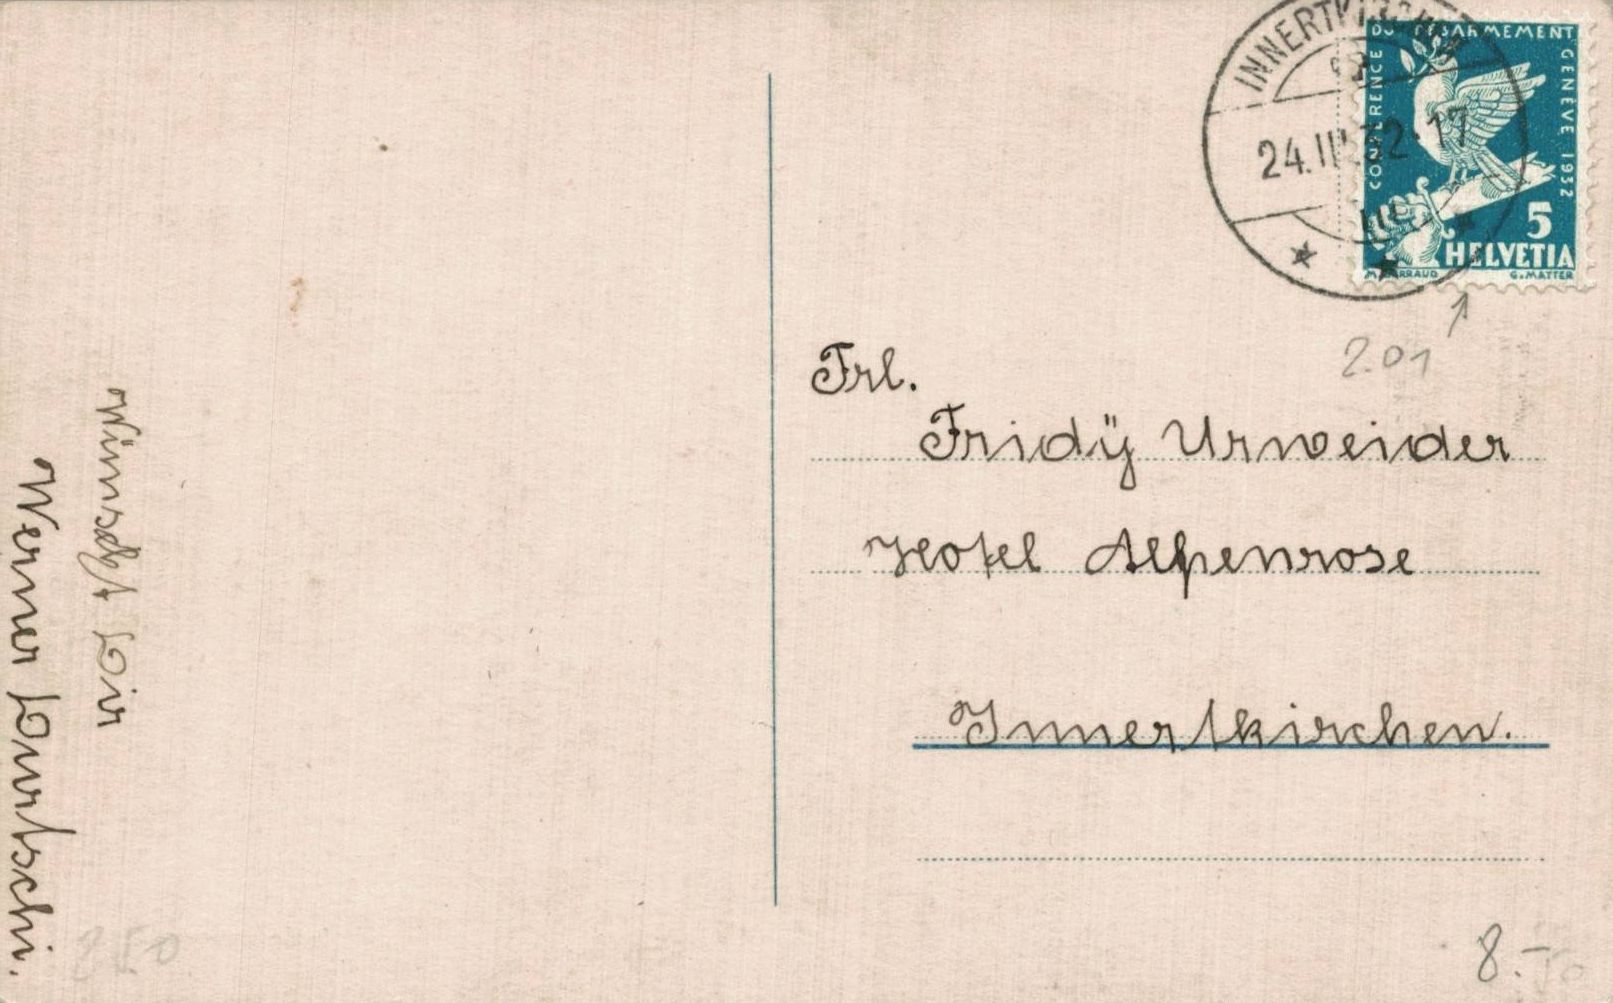 INNERTKIRCHEN
24.III.32·17
CONFERENCE DU DÉSARMEMENT GENÈVE 1932
5
HELVETIA
G. MATTER
201
Frl.
Fridÿ Urweider
Hotel Alpenrose
Innertkirchen.
Wünscht Dir
Werner Durtschi.
8.-